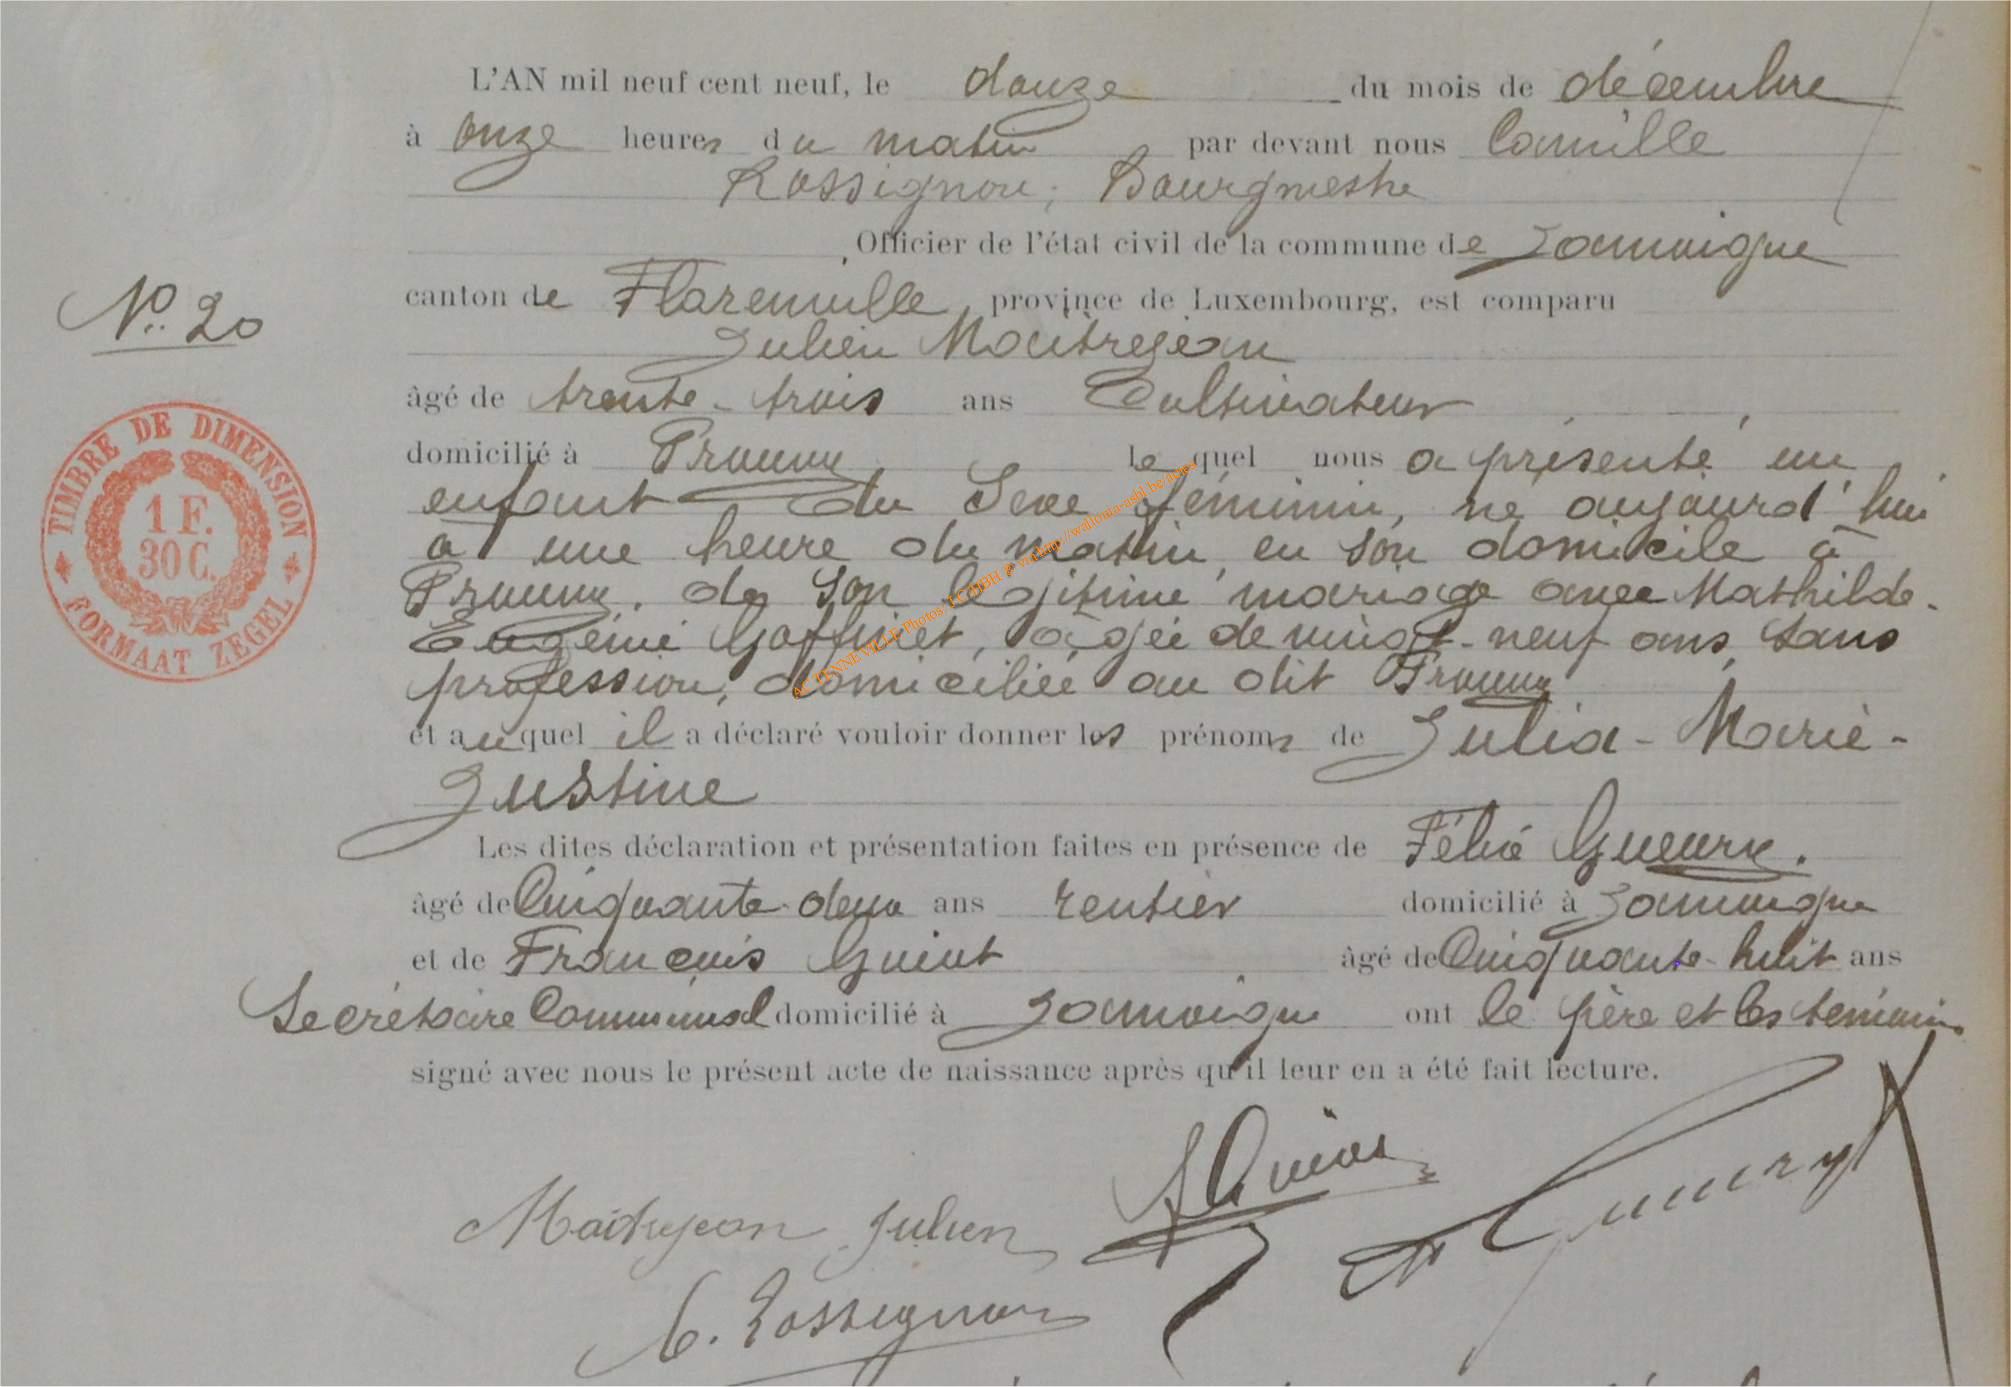 L'AN mil neuf cent neuf, le douze du mois de décembre
à onze heures du matin par devant nous Camille
Rossignon, Bourgmestre
Officier de l'état civil de la commune de Jamoigne
canton de Florenville, province de Luxembourg, est comparu
N° 20
Julien Maitrejean
âgé de trente-trois ans Cultivateur
domicilié à Prouvy lequel nous a présenté un
enfant du sexe féminin, né aujourd'hui
à une heure du matin, en son domicile à
Prouvy, de son légitime mariage avec Mathilde-
Eugénie Goffinet, âgée de vingt-neuf ans, sans
profession, domiciliée au dit Prouvy
et auquel il a déclaré vouloir donner les prénoms de Julia-Marie-
Justine
Les dites déclaration et présentation faites en présence de Félix Gueury.
âgé de Cinquante-deux ans rentier domicilié à Jamoigne
et de François Guiot âgé de Cinquante-huit ans
Secrétaire Communal domicilié à Jamoigne ont le père et les témoins
signé avec nous le présent acte de naissance après qu'il leur en a été fait lecture.
Maitrejean Julien
C. Rossignon
TIMBRE DE DIMENSION
1 F.
30 C.
FORMAAT ZEGEL